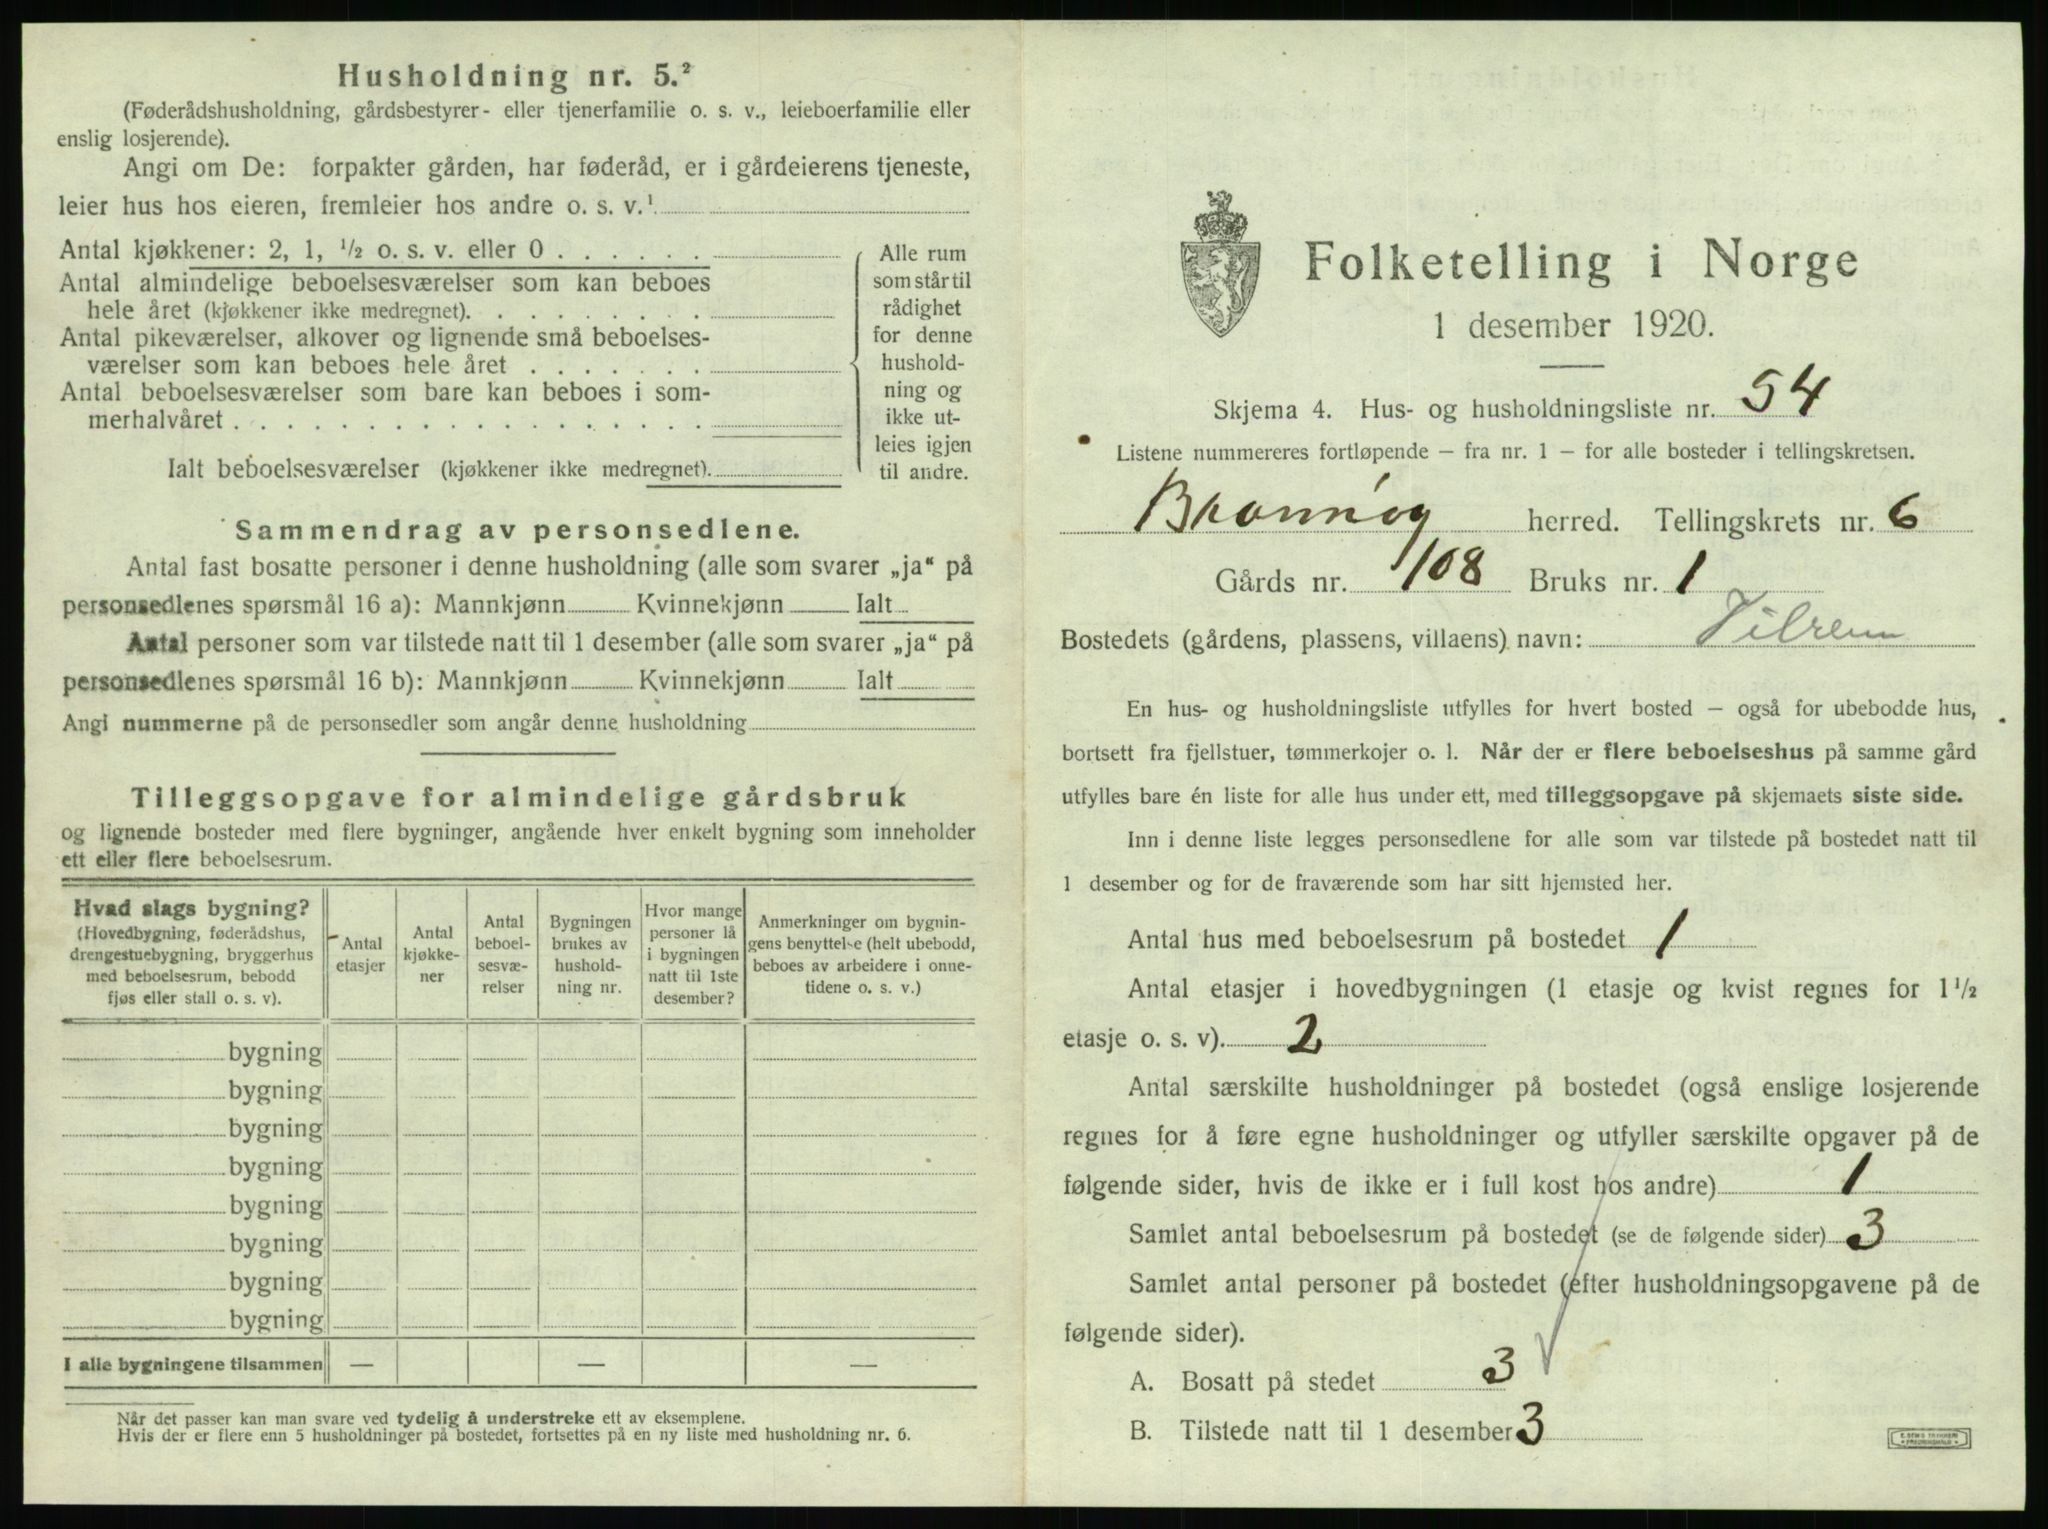 Husholdning nr. 5.²
(Føderådshusholdning, gårdsbestyrer- eller tjenerfamilie o. s. v., leieboerfamilie eller
enslig losjerende).
Angi om De: forpakter gården, har føderåd, er i gårdeierens tjeneste,
leier hus hos eieren, fremleier hos andre o. s. v.¹
Antal kjøkkener: 2, 1, ½ o. s. v. eller 0 . . . . . .
Antal almindelige beboelsesværelser som kan beboes
hele året (kjøkkener ikke medregnet). . . . . . . . .
Antal pikeværelser, alkover og lignende små beboelses-
værelser som kan beboes hele året . . . . . . .
Antal beboelsesværelser som bare kan beboes i som-
merhalvåret . . . . . . . . . . . . . . . . . .
Ialt beboelsesværelser (kjøkkener ikke medregnet).
Alle rum
som står til
rådighet
for denne
hushold-
ning og
ikke ut-
leies igjen
til andre.
Sammendrag av personsedlene.
Antal fast bosatte personer i denne husholdning (alle som svarer „ja“ på
personsedlenes spørsmål 16 a): Mannkjønn Kvinnekjønn Ialt
Antal personer som var tilstede natt til 1 desember (alle som svarer „ja“ på
personsedlenes spørsmål 16 b): Mannkjønn Kvinnekjønn Ialt
Angi nummerne på de personsedler som angår denne husholdning
Tilleggsopgave for almindelige gårdsbruk
og lignende bosteder med flere bygninger, angående hver enkelt bygning som inneholder
ett eller flere beboelsesrum.
Hvad slags bygning?
(Hovedbygning, føderådshus,
drengestuebygning, bryggerhus
med beboelsesrum, bebodd
fjøs eller stall o. s. v).
Antal
etasjer
Antal
kjøkke-
ner
Antal
beboel-
sesvæ-
relser
Bygningen
brukes av
hushold-
ning nr.
Hvor mange
personer lå
i bygningen
natt til 1ste
desember?
Anmerkninger om bygnin-
gens benyttelse (helt ubebodd,
beboes av arbeidere i onne-
tidene o. s. v.)
bygning
bygning
bygning
bygning
bygning
bygning
bygning
bygning
I alle bygningene tilsammen — — —
Når det passer kan man svare ved tydelig å understreke ett av eksemplene.
Hvis der er flere enn 5 husholdninger på bostedet, fortsettes på en ny liste med husholdning nr. 6.
Folketelling i Norge
1 desember 1920.
Skjema 4. Hus- og husholdningsliste nr. 54
Listene nummereres fortløpende – fra nr. 1 – for alle bosteder i tellingskretsen.
Brønnøy herred. Tellingskrets nr. 6
Gårds nr. 108 Bruks nr. 1
Bostedets (gårdens, plassens, villaens) navn: Tilrem
En hus- og husholdningsliste utfylles for hvert bosted – også for ubebodde hus,
bortsett fra fjellstuer, tømmerkojer o. l. Når der er flere beboelseshus på samme gård
utfylles bare én liste for alle hus under ett, med tilleggsopgave på skjemaets siste side.
Inn i denne liste legges personsedlene for alle som var tilstede på bostedet natt til
1 desember og for de fraværende som har sitt hjemsted her.
Antal hus med beboelsesrum på bostedet 1
Antal etasjer i hovedbygningen (1 etasje og kvist regnes for 1 ½
etasje o. s. v). 2
Antal særskilte husholdninger på bostedet (også enslige losjerende
regnes for å føre egne husholdninger og utfyller særskilte opgaver på de
følgende sider, hvis de ikke er i full kost hos andre) 1
Samlet antal beboelsesrum på bostedet (se de følgende sider) 3
Samlet antal personer på bostedet (efter husholdningsopgavene på de
følgende sider).
A. Bosatt på stedet 3
B. Tilstede natt til 1 desember 3